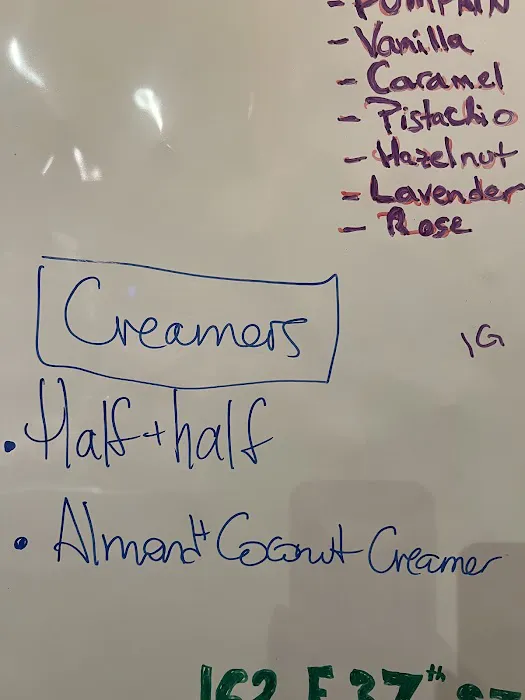 - PUMPKIN
- Vanilla
- Caramel
- Pistachio
- Hazelnut
- Lavender
- Rose
Creamers
IG
• Half+half
• Almond+ Coconut Creamer
162 E 37th ST